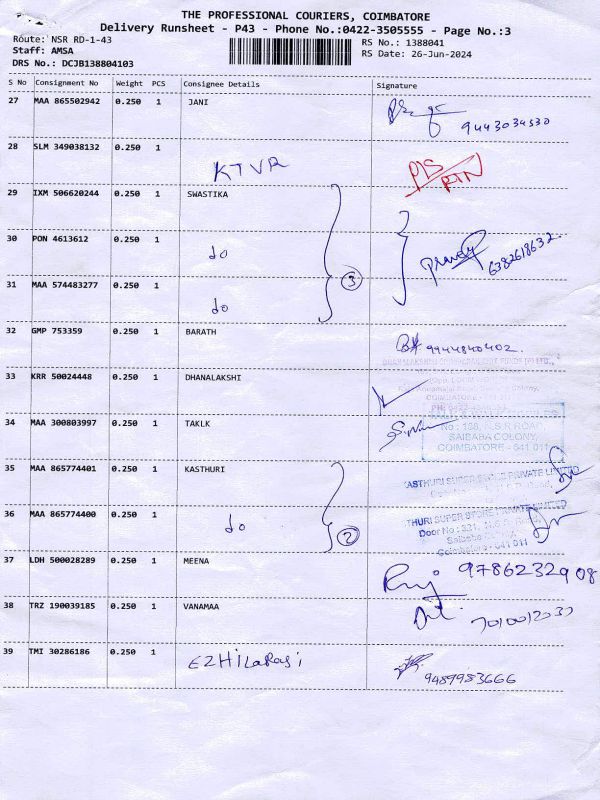 THE PROFESSIONAL COURIERS, COIMBATORE
Delivery Runsheet - P43 - Phone No.:0422-3505555 - Page No.:3
Route: NSR RD-1-43
RS No.: 1388041
Staff: AMSA
RS Date: 26-Jun-2024
DRS No.: DCJB138804103
S No Consignment No Weight PCS Consignee Details Signature
27 MAA 865502942 0.250 1 JANI
9443034530
28 SLM 349038132 0.250 1 KTVR
RTN
29 IXM 506620244 0.250 1 SWASTIKA
30 PON 4613612 0.250 1 do
3 6382618632
31 MAA 574483277 0.250 1 do
32 GMP 753359 0.250 1 BARATH
9944840402
33 KRR 50024448 0.250 1 DHANALAKSHI
34 MAA 300803997 0.250 1 TAKLK
No : 188, N.S.R ROAD,
SAIBABA COLONY,
COIMBATORE - 641 011
35 MAA 865774401 0.250 1 KASTHURI
36 MAA 865774400 0.250 1 do 2
THURI SUPER STORE PRIVATE LIMITED
37 LDH 500028289 0.250 1 MEENA
9786232908
38 TRZ 190039185 0.250 1 VANAMAA
39 TMI 30286186 0.250 1 EZHILaRasi
9489953666